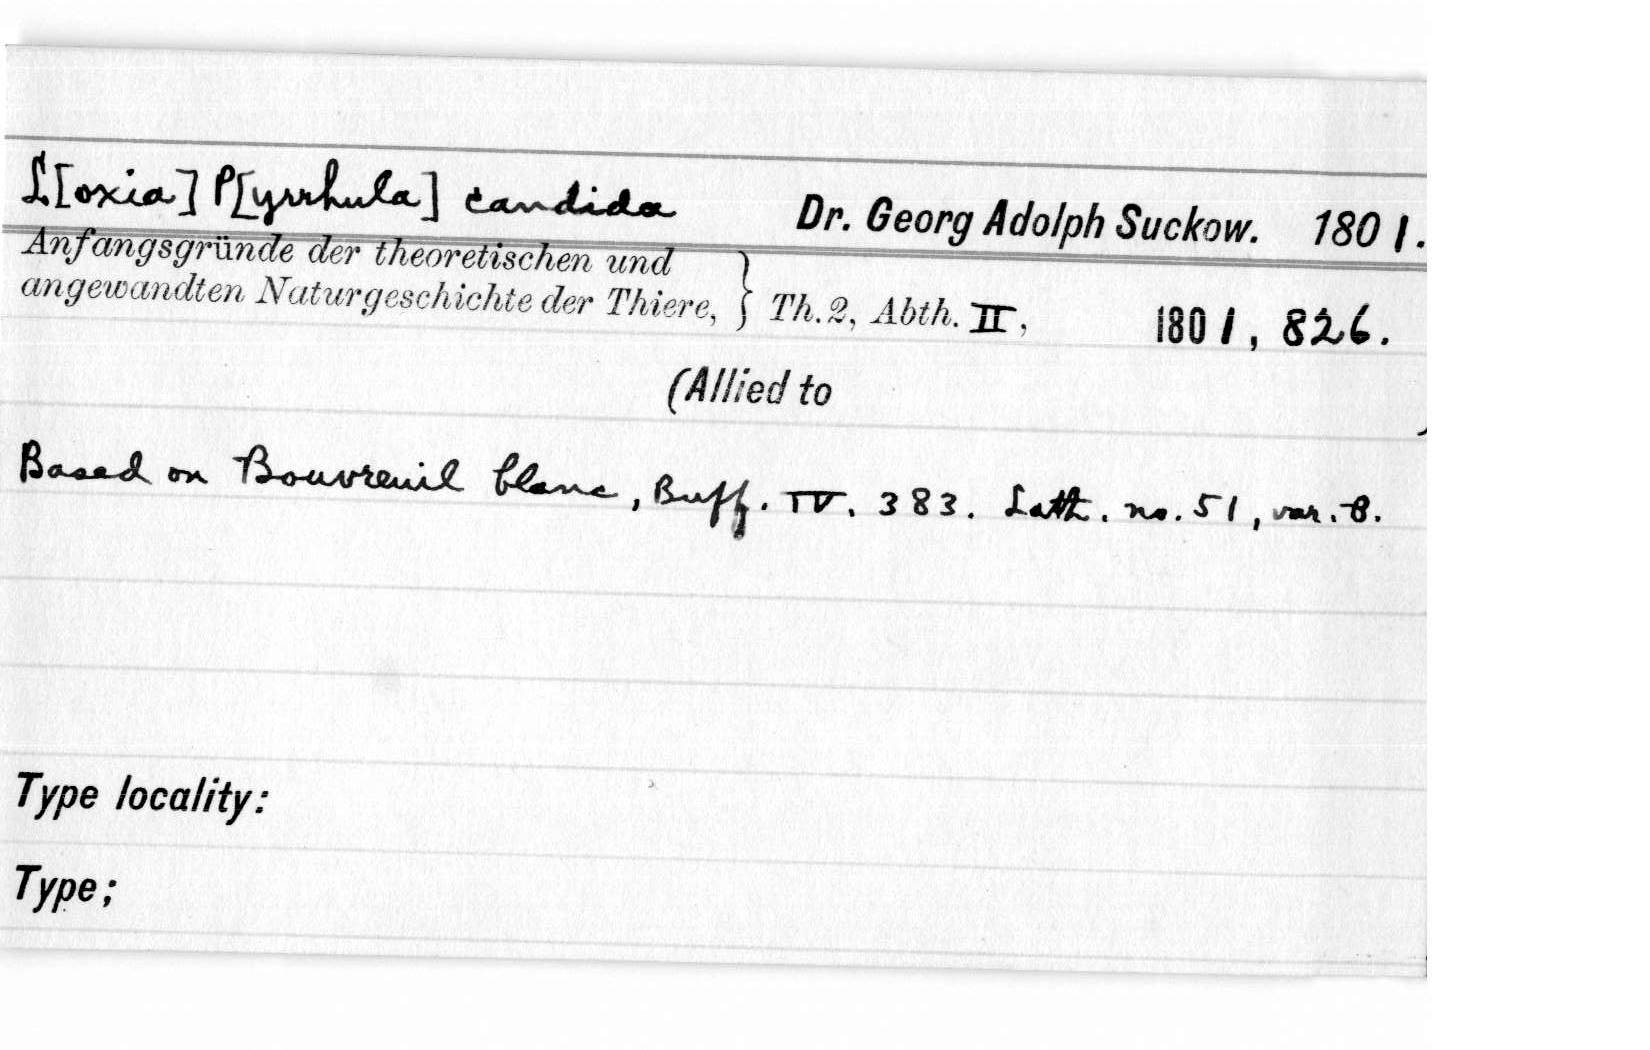 L[oxia] P[yrrhula] candida Dr. Georg Adolph Suckow. 1801.
Anfangsgründe der theoretischen und
angewandten Naturgeschichte der Thiere, } Th. 2, Abth. II, 1801, 826.
(Allied to )
Based on Bouvreuil blanc, Buff. IV. 383. Lath. no. 51, var. B.
Type locality:
Type;